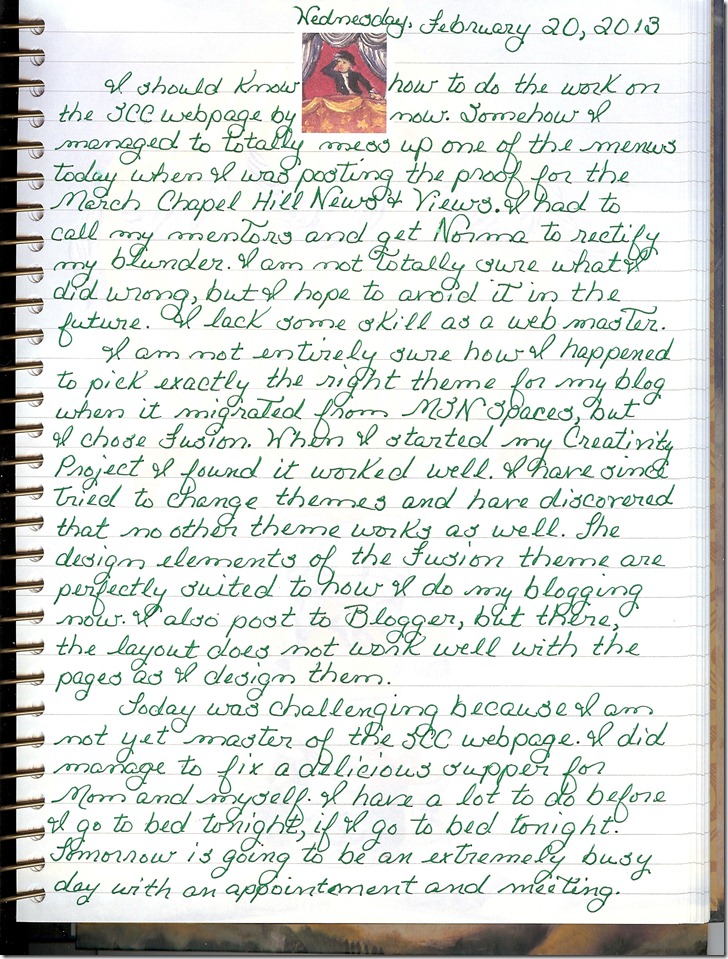 Wednesday, February 20, 2013
I should know how to do the work on
the SCC webpage by now. Somehow I
managed to totally mess up one of the menus
today when I was posting the proof for the
March Chapel Hill News & Views. I had to
call my mentors and get Norma to rectify
my blunder. I am not totally sure what I
did wrong, but I hope to avoid it in the
future. I lack some skill as a web master.
I am not entirely sure how I happened
to pick exactly the right theme for my blog
when it migrated from MSN Spaces, but
I chose Fusion. When I started my Creativity
Project I found it worked well. I have since
tried to change themes and have discovered
that no other theme works as well. The
design elements of the Fusion theme are
perfectly suited to how I do my blogging
now. I also post to Blogger, but there,
the layout does not work well with the
pages as I design them.
Today was challenging because I am
not yet master of the SCC webpage. I did
manage to fix a delicious supper for
Mom and myself. I have a lot to do before
I go to bed tonight, if I go to bed tonight.
Tomorrow is going to be an extremely busy
day with an appointment and meeting.